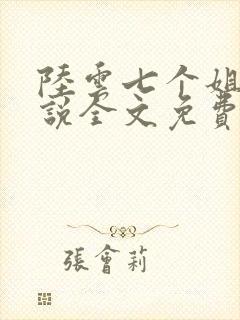 陸雲七个姐
說全文免費
張會莉